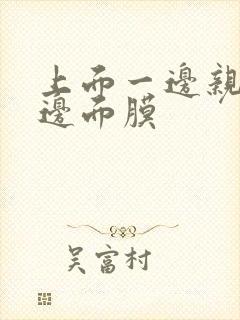 上而一邊親
邊而膜
吴富村